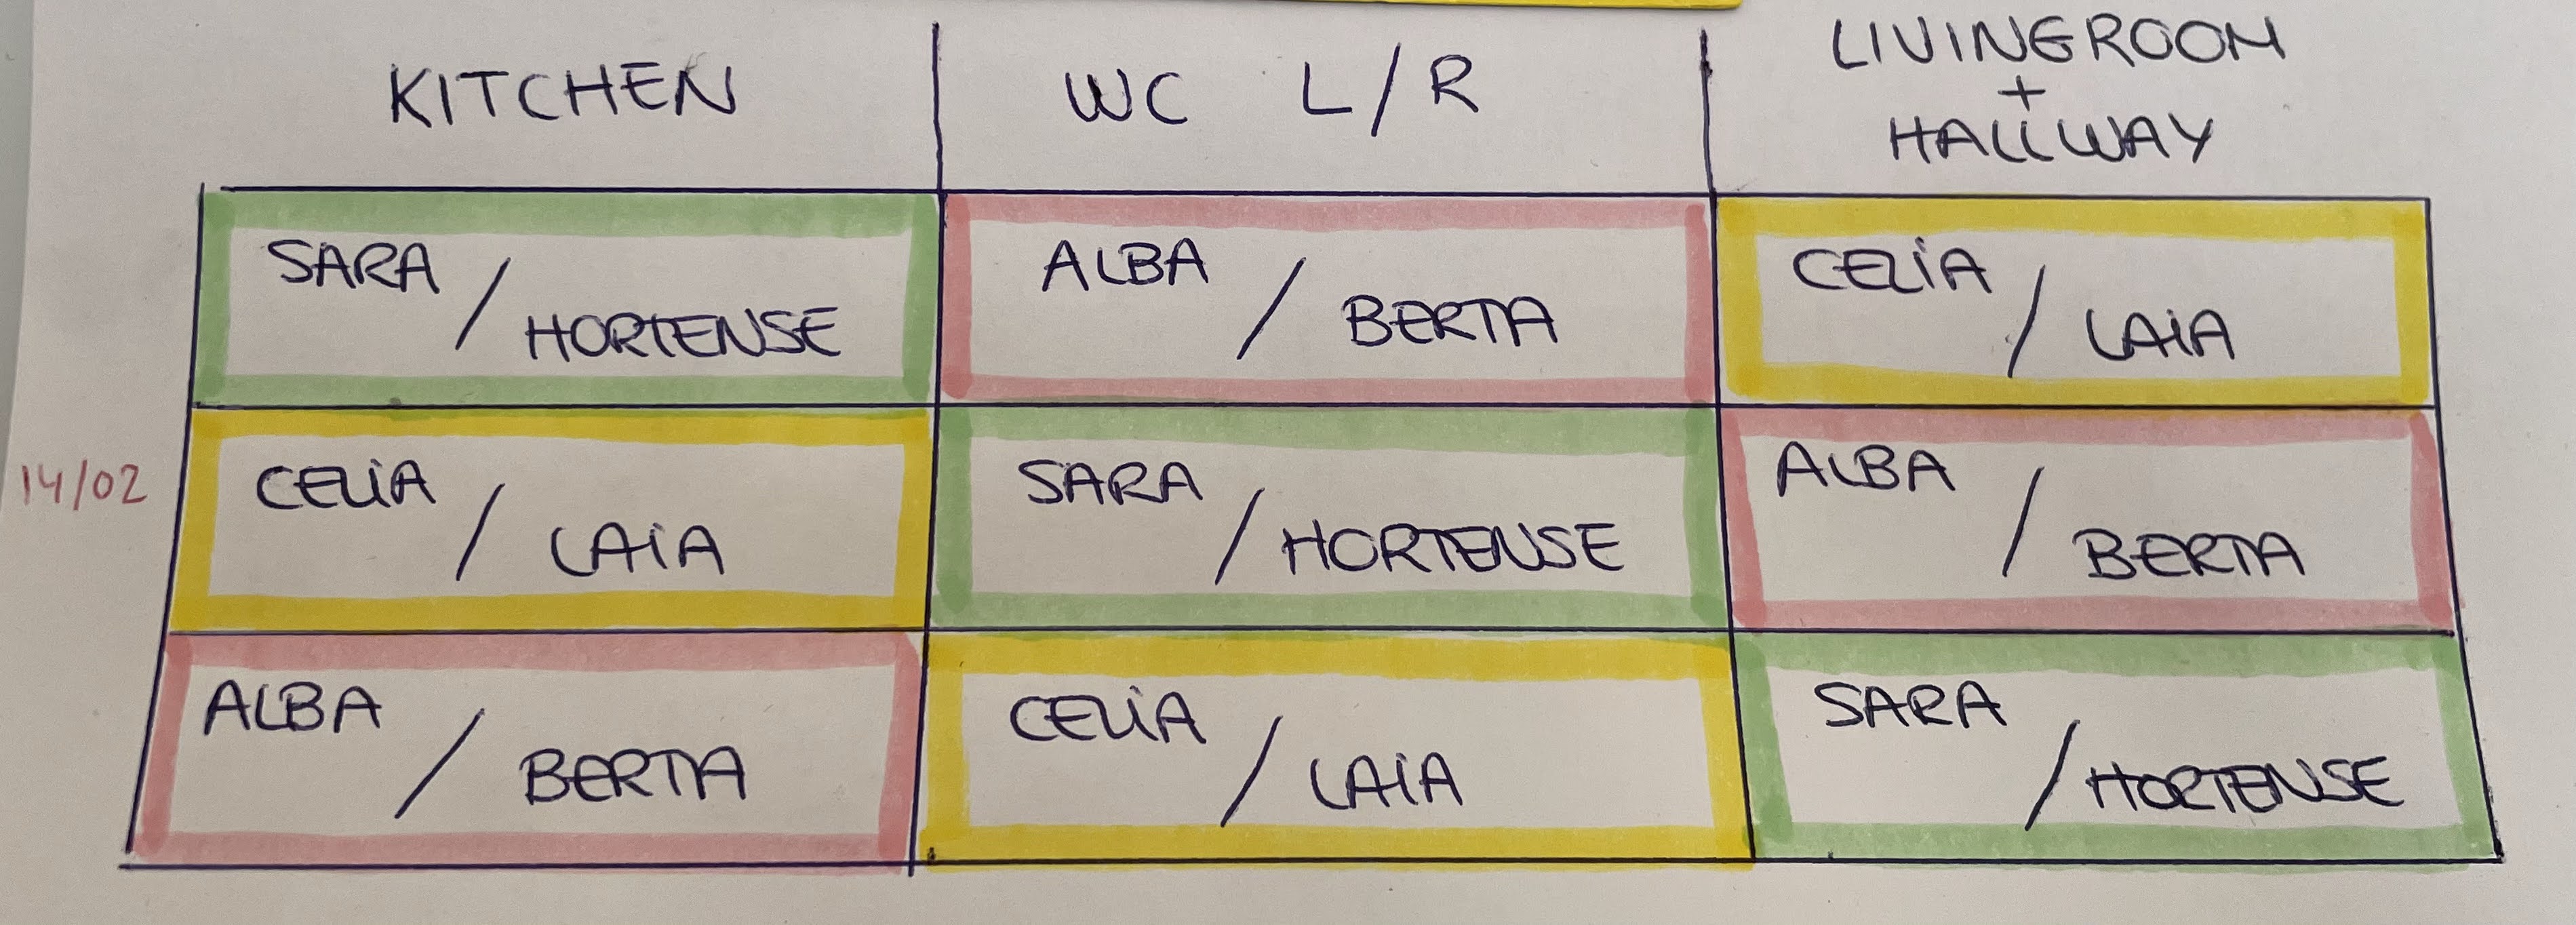 KITCHEN
WC L/R
LIVINGROOM
+
HALLWAY
SARA / HORTENSE
ALBA / BERTA
CELIA / LAIA
14/02
CELIA / LAIA
SARA / HORTENSE
ALBA / BERTA
ALBA / BERTA
CELIA / LAIA
SARA / HORTENSE